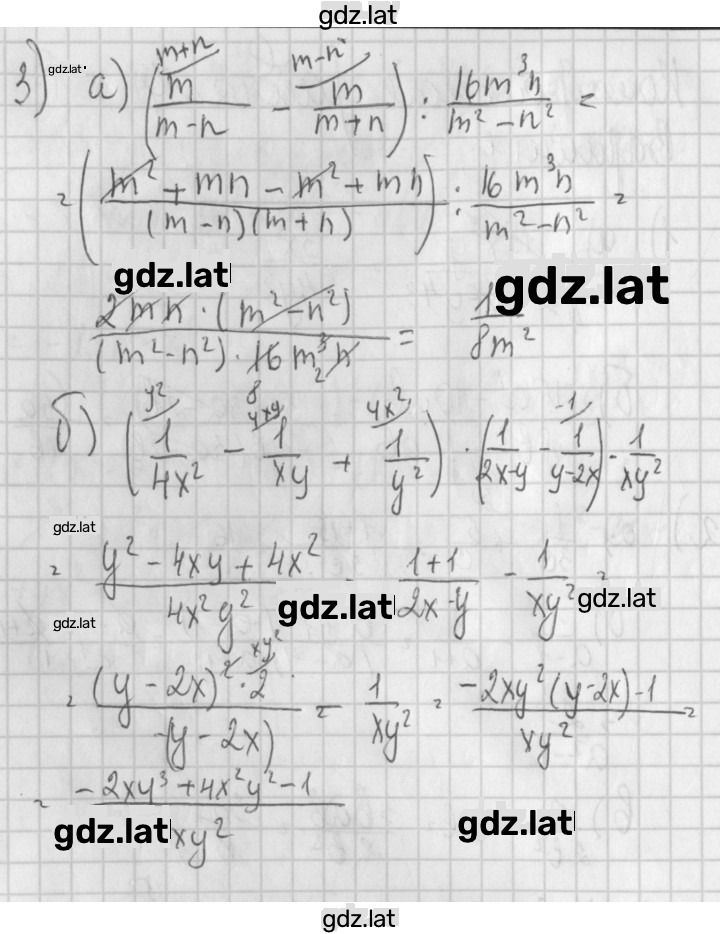 gdz.lat
3) gdz.lat а) (m/(m-n) [m+n] - m/(m+n) [m-n]) : 16m³n/(m²-n²) =
= ((m² + mn - m² + mn)/((m-n)(m+n))) : 16m³n/(m²-n²) =
gdz.lat gdz.lat
2mn · (m²-n²)/((m²-n²) · 16m³n) = 1/8m²
8 2
б) (1/4x² [y²] - 1/xy [4xy] + 1/y² [4x²]) · (1/(2x-y) - 1/(y-2x) [-1]) - 1/xy²
gdz.lat
= (y² - 4xy + 4x²)/4x²y² · (1+1)/(2x-y) - 1/xy² =
gdz.lat gdz.lat gdz.lat
= (y - 2x)² · 2 [xy²]/(-(y - 2x)) - 1/xy² = (-2xy²(y-2x)-1)/xy² =
= (-2xy³ + 4x²y² - 1)/xy²
gdz.lat gdz.lat
gdz.lat